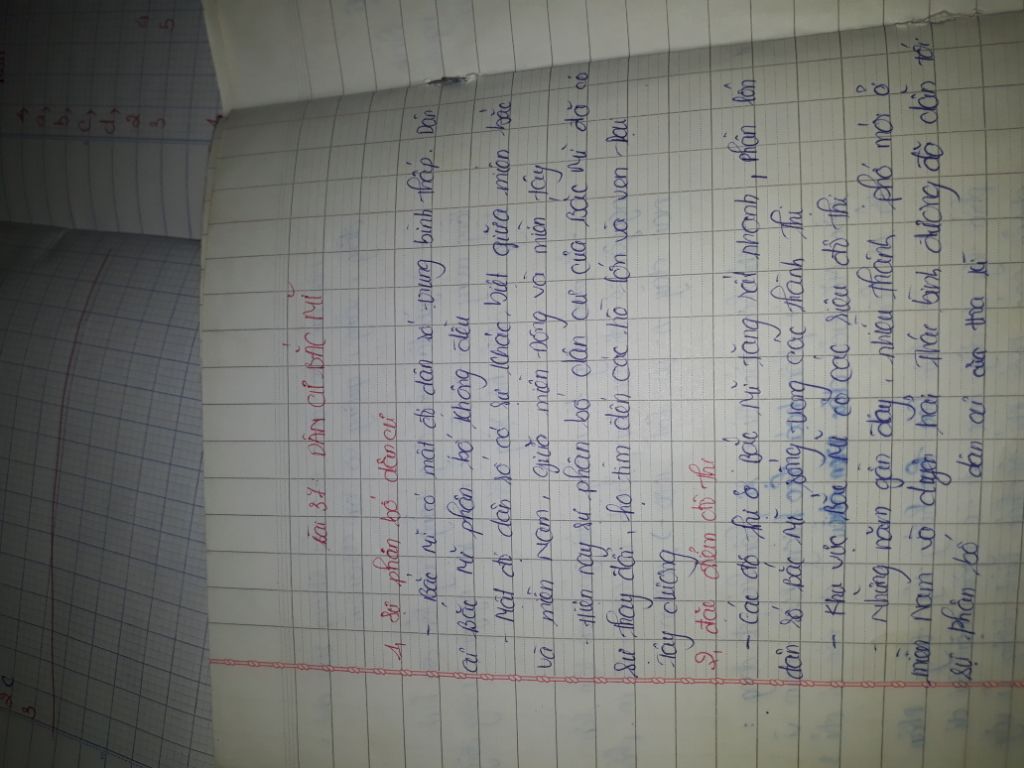 Bài 37: DÂN CƯ BẮC MĨ
1, Sự phân bố dân cư
- Bắc Mĩ có mật độ dân số trung bình thấp. Dân
cư Bắc Mĩ phân bố không đều
- Mật độ dân số có sự khác biệt giữa miền bắc
và miền Nam, giữa miền Đông và miền Tây
- Hiện nay sự phân bố dân cư của Bắc Mĩ đã có
sự thay đổi, họ tìm đến các hồ lớn và ven Đại
Tây dương
2, Đặc điểm đô thị
- Các đô thị ở Bắc Mĩ tăng rất nhanh, phần lớn
dân số Bắc Mĩ sống trong các thành thị
- Khu vực Bắc Mĩ có các siêu đô thị
- Những năm gần đây, nhiều thành phố mới ở
miền Nam và duyên hải Thái bình dương đã dẫn tới
sự phân bố dân cư của Hoa kì
1,
a,
b,
c,
d,
2
3
a
5
2c
3